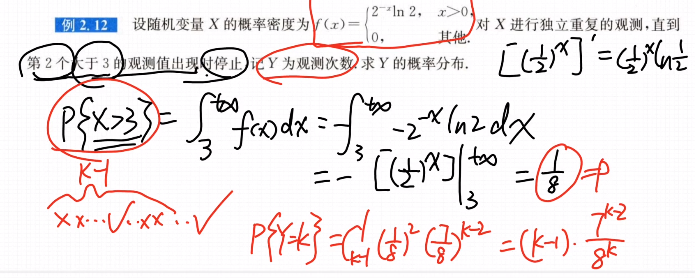 例 2.12 设随机变量 X 的概率密度为 f(x)={2⁻ˣln 2, x>0, 0, 其他. 对 X 进行独立重复的观测,直到
第 2 个大于 3 的观测值出现时停止,记 Y 为观测次数.求 Y 的概率分布.
[(1/2)ˣ]' = (1/2)ˣ ln 1/2
P{X>3} = ∫₃^{+∞} f(x)dx = -∫₃^{+∞} -2⁻ˣ ln2 dx
= -[(1/2)ˣ]|₃^{+∞} = 1/8 = p
k-1
××…√…××…√
P{Y=k} = C¹ₖ₋₁ (1/8)² (7/8)ᵏ⁻² = (k-1)· 7ᵏ⁻²/8ᵏ